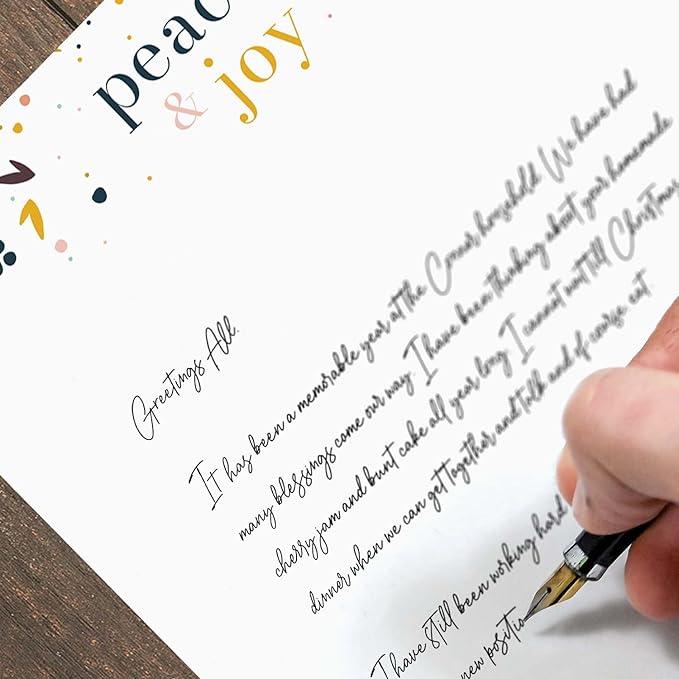 peac
& joy
Greetings All,
It has been a memorable year at the Conner household. We have had
many blessings come our way. I have been thinking about your homemade
cherry jam and bunt cake all year long. I cannot wait till Christmas
dinner when we can get together and talk and of course eat.
I have still been working hard
new positio